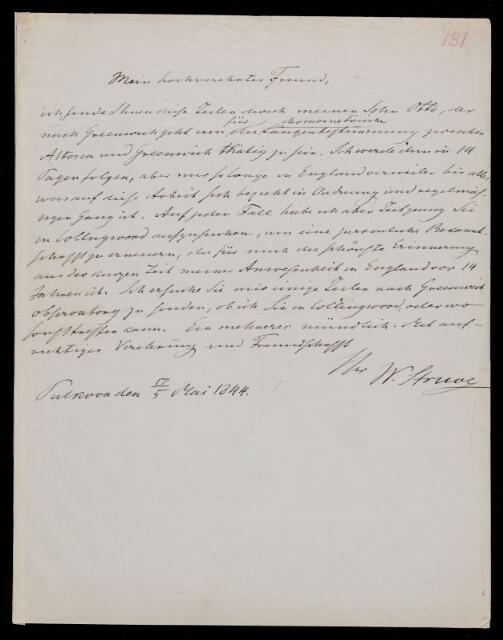 131
Mein hochverehrter Freund,
ich sende Ihnen diese Zeilen durch meinen Sohn Otto, der
nach Greenwich geht um für die chronometrische Längenbestimmung zwischen
Altona und Greenwich thätig zu sein. Ich werde ihm in 14
Tagen folgen, aber nur so lange in England verweilen bis alles,
was auf diese Arbeit sich bezieht in Ordnung und regelmäs-
sigen Gang ist. Auf jeden Fall habe ich aber Zeit genug Sie
in Collingwood aufzusuchen, um eine persönliche Bekannt-
schafft zu erneuern, die für mich die schönste Erinnerung
aus der kurzen Zeit meiner Anwesenheit in England vor 14
Jahren ist. Ich ersuche Sie mir einige Zeilen nach Greenwich
observatory zu senden, ob ich Sie in Collingwood, oder wo
sonst treffen kann. Ein mehreres mündlich. Mit auf-
richtiger Verehrung und Freundschafft
Ihr
W. Struve
Pulkova den 5 Mai 1844.